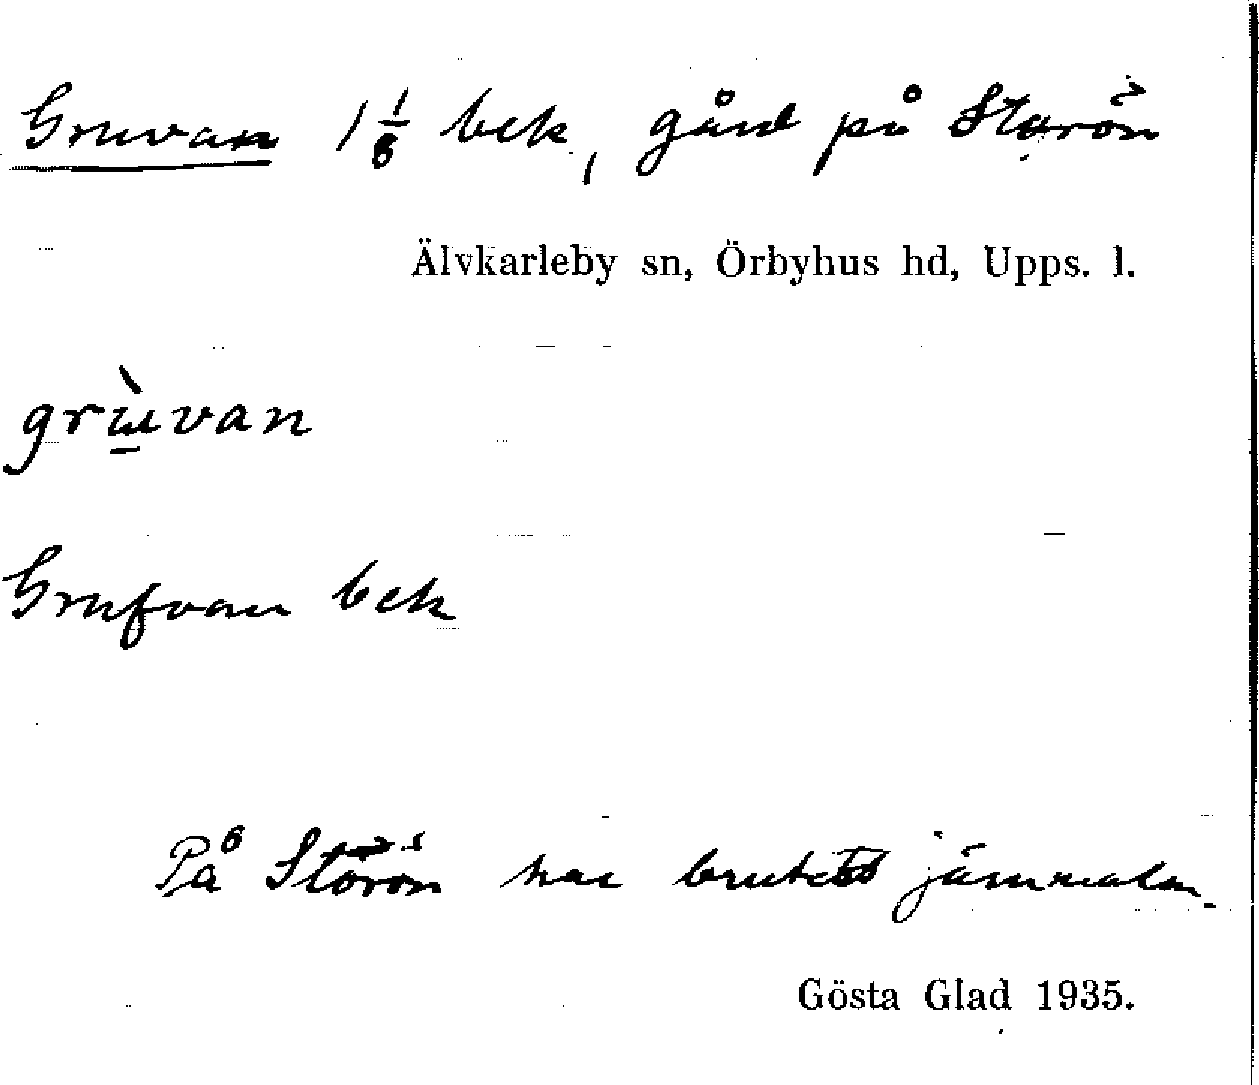 Gruvan 1 1/6 bek, gård på Storön
Älvkarleby sn, Örbyhus hd, Upps. l.
grùvan
Grufvan bek
På Storön har brutits järnmalm.
Gösta Glad 1935.